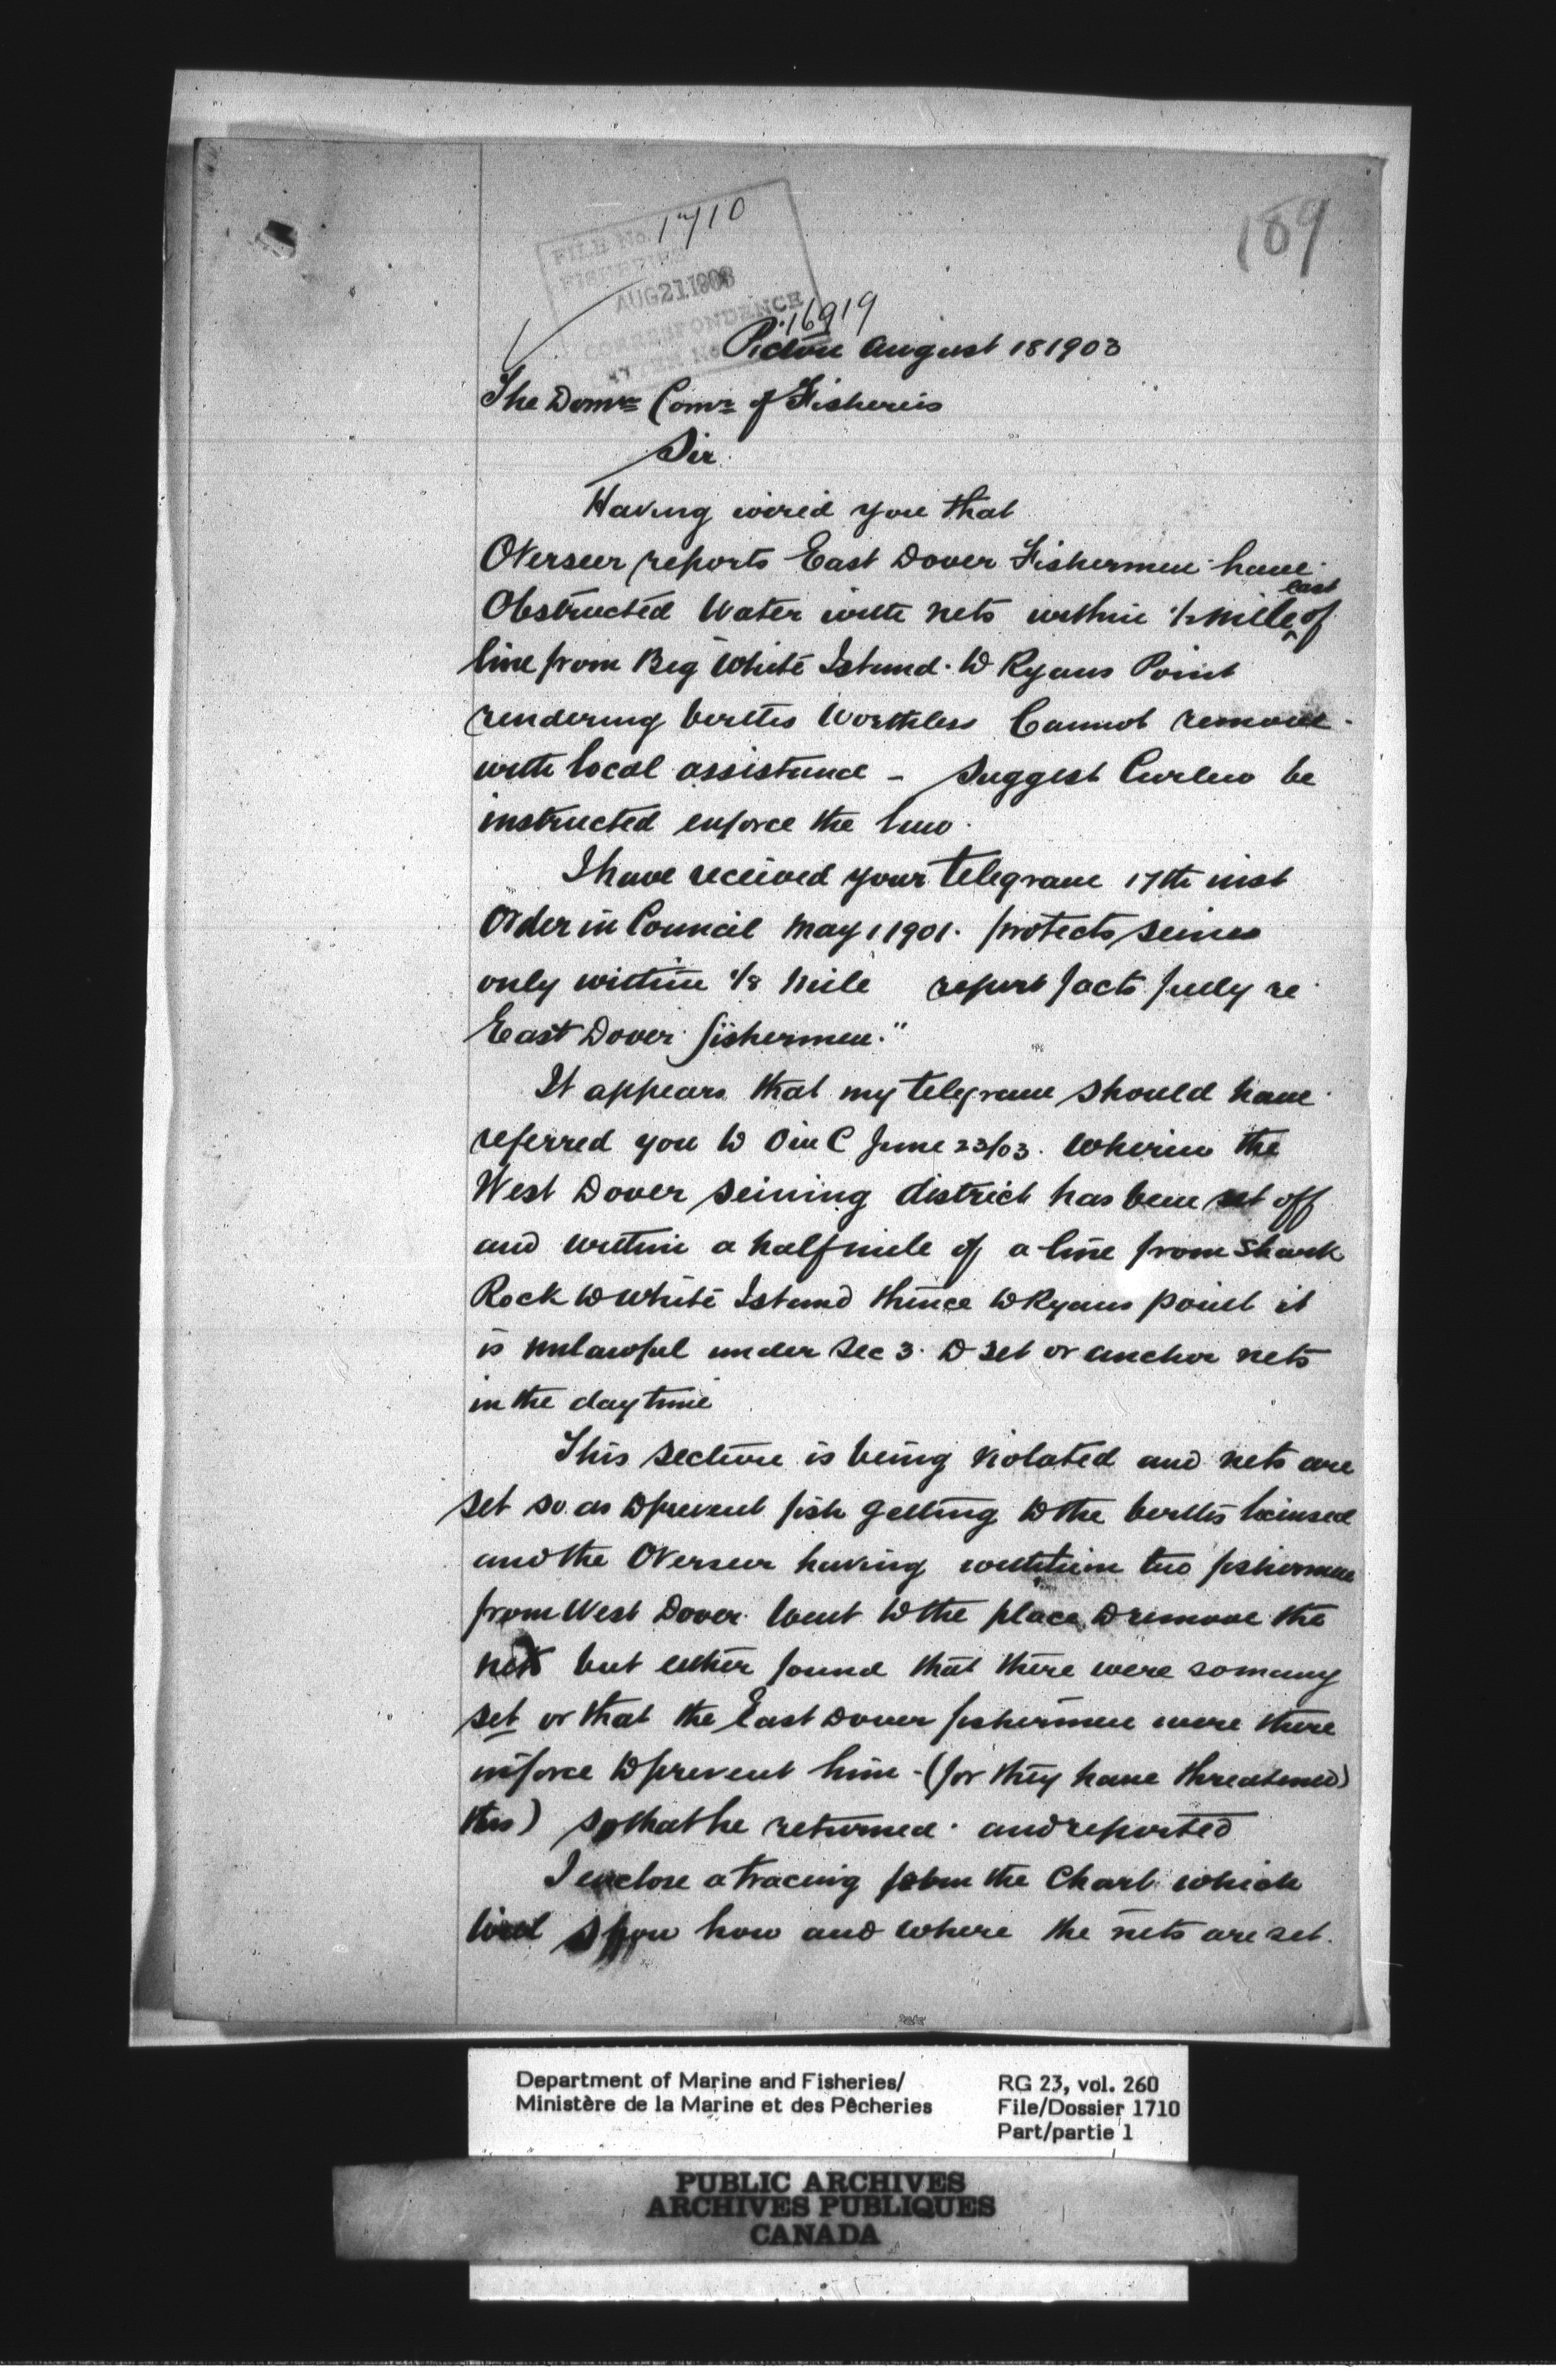 189
FILE No. 1710
FISHERIES
AUG 21 1903
CORRESPONDENCE
16919
Pictou August 18 1903
The Domn Comr of Fisheries
Sir
Having wired you that
Overseer reports East Dover Fishermen have
Obstructed Water with nets within 1/2 mile east of
line from Big White Island to Ryans Point
rendering berths Worthless Cannot remove
with local assistance - Suggest Curlew be
instructed enforce the law.
I have received your telegram 17th inst
Order in Council May 1 1901. protects seines
only within 1/8 mile report facts fully re
East Dover fishermen."
It appears that my telegram should have
referred you to O in C June 23/03. wherein the
West Dover seining district has been set off
and within a half mile of a line from Shark
Rock to White Island thence to Ryans point it
is unlawful under Sec 3. to set or anchor nets
in the daytime
This section is being violated and nets are
set so as to prevent fish getting to the berths licensed
and the Overseer having with him two fishermen
from West Dover went to the place to remove the
nets but either found that there were so many
set or that the East Dover fishermen were there
in force to prevent him - (for they have threatened)
this) so that he returned. and reported
I enclose a tracing from the Chart which
will show how and where the nets are set.
Department of Marine and Fisheries/
Ministère de la Marine et des Pêcheries
RG 23, vol. 260
File/Dossier 1710
Part/partie 1
PUBLIC ARCHIVES
ARCHIVES PUBLIQUES
CANADA